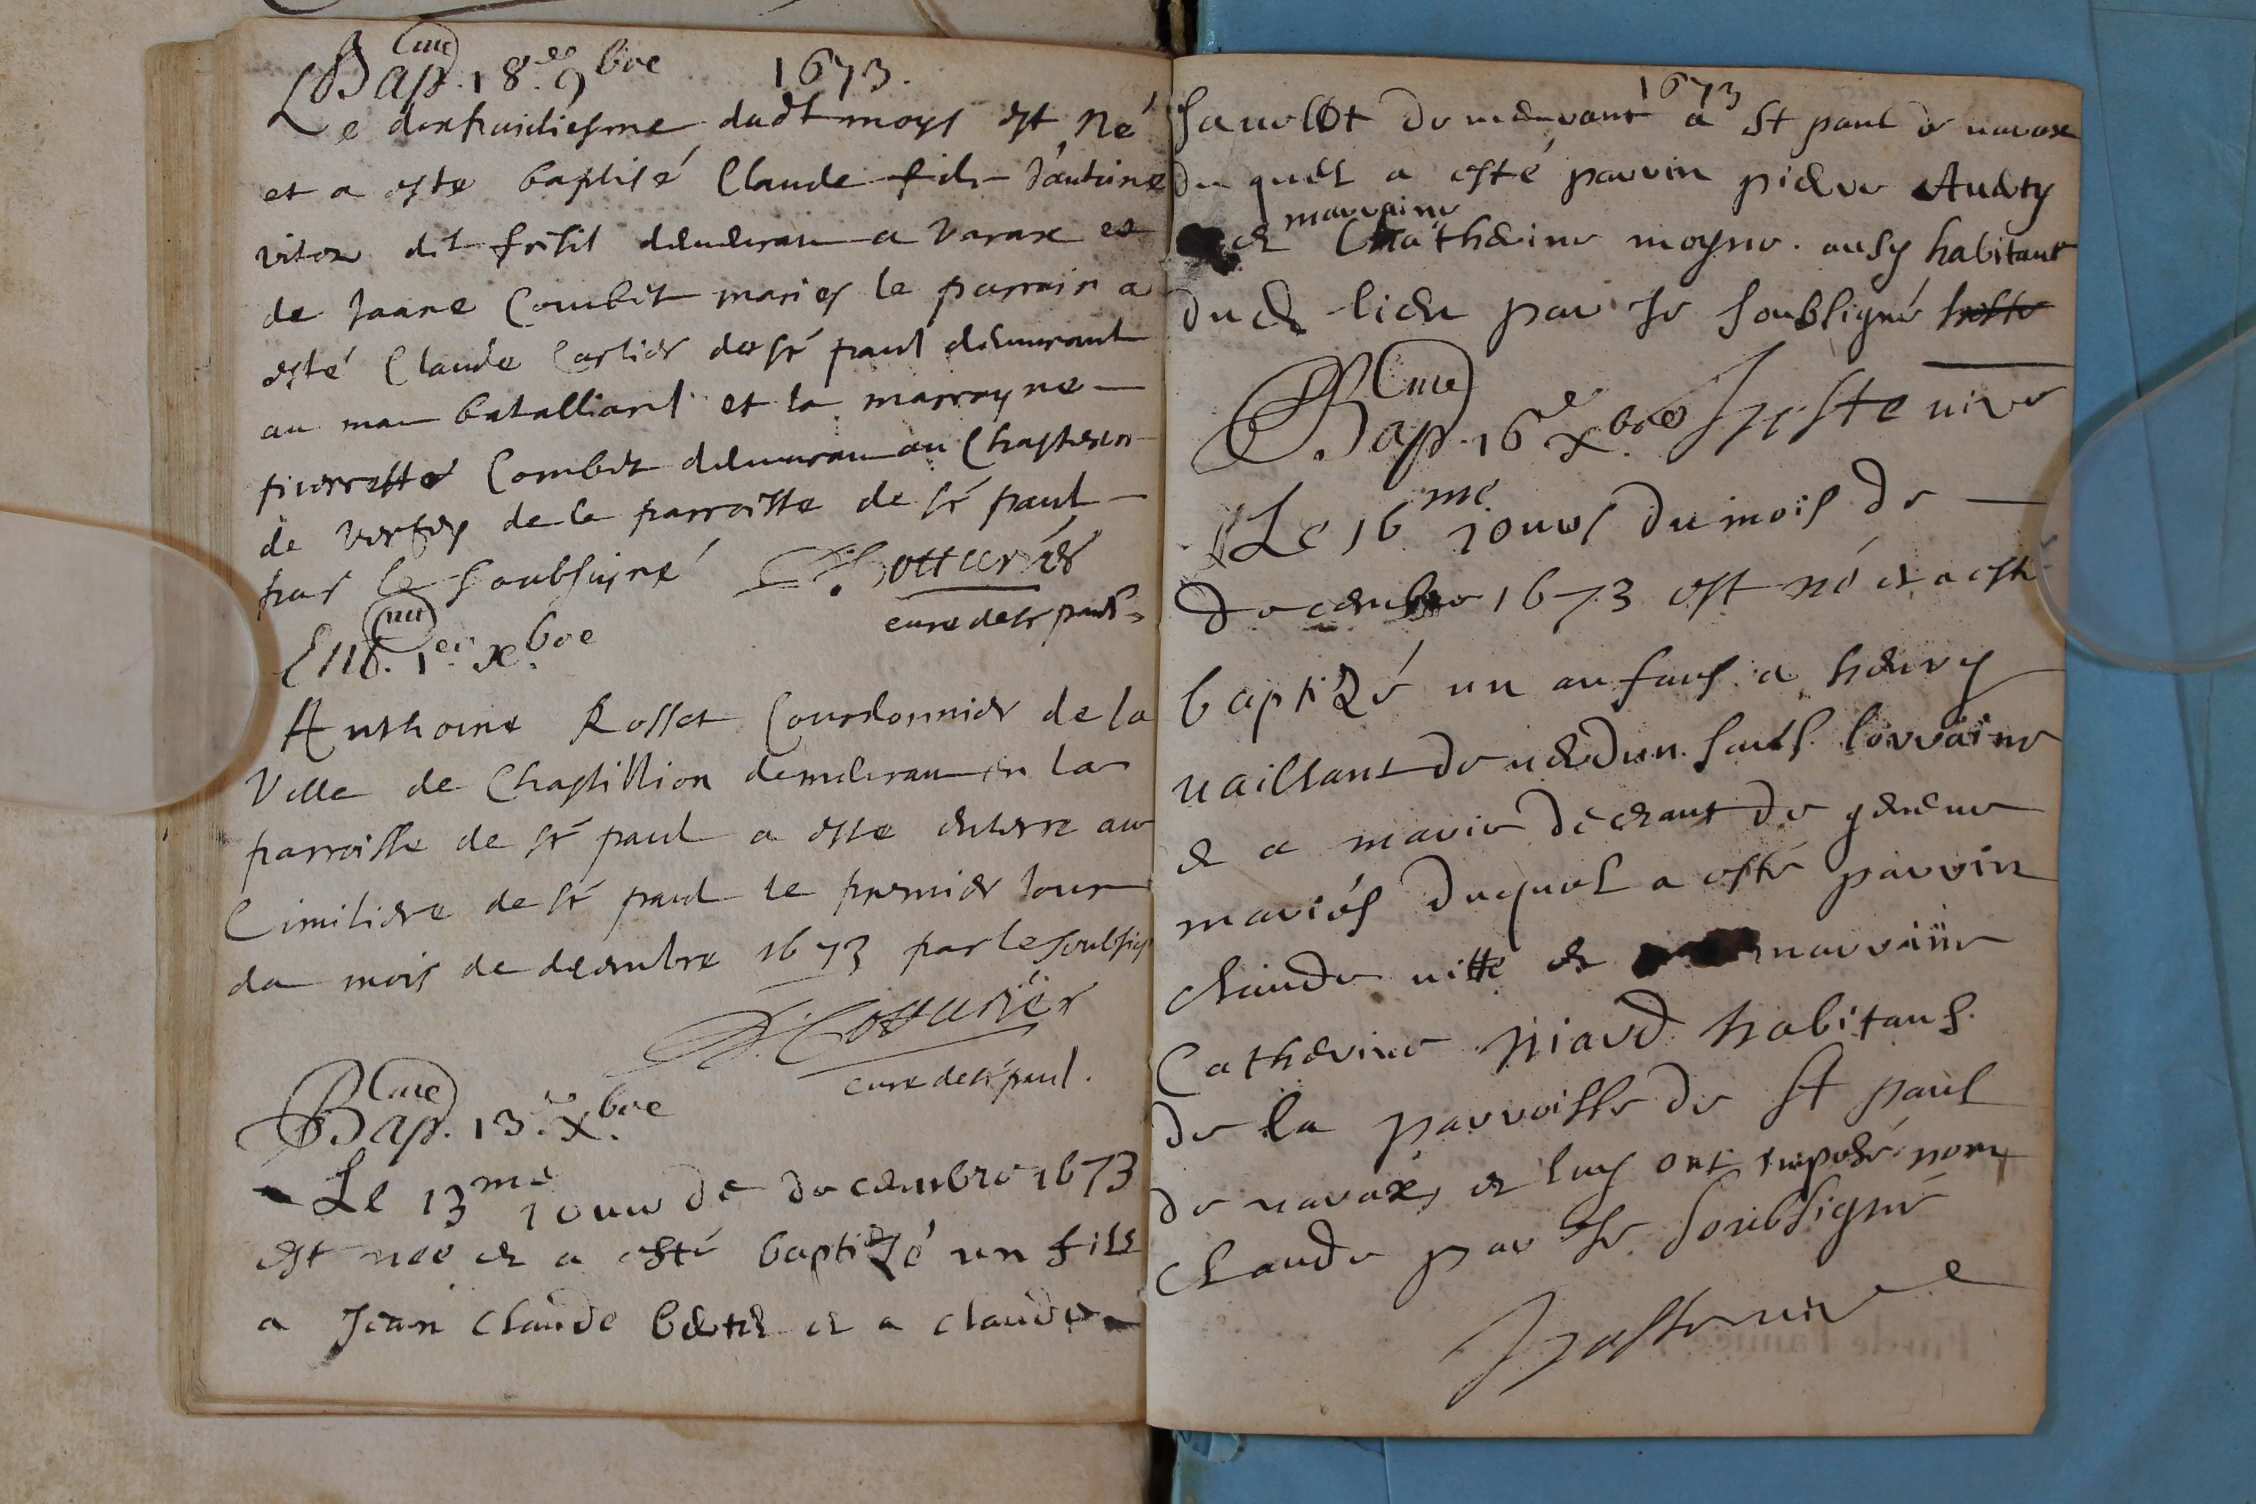 Bap. 18.e 9bre 1673.
Le dixhuictiesme dudt moys est né
et a este baptisé Claude fils d'antoine
vitoz dit demeurau a Varax et
de Jaane Combet maries le parrain a
esté Claude Cartier de St paul demeurant
au mau batalliard et la marrayne
pierrette Combet demeurau au
de de la parroisse de St paul
par le soubsigné Cotturier
cure de St paul
Ent. 1er Xbre
Anthoine Rosset Courdonnier de la
Ville de Chastillion demeurau en la
parroisse de St paul a esté enterre au
Cimitiere de St paul le premier Jour
du mois de decembre 1673 par le soubsig
Cotturier
cure de St paul.
Bap. 13.e Xbre
Le 13me Jour de decembre 1673
est nee et a esté baptizé un fils
a Jean Claude et a claude
1673
demeurant a St paul de varax
duquel a esté parrin pierre Audry
et marraine Chatherine moyne. ausy habitant
dud lieu par Je soubsigné
Bap. 16e Xbre
Le 16me Jours du mois de
decembre 1673 est né et a esté
baptizé un anfans a henry
vaillant de verdun lorraine
et a marie de geneve
mariés duquel a esté parrin
claude vitte et marraine
Catherine piard habitans
de la parroisse de St paul
de varax, et luy ont imposé nom
Claude par Je soubsigné